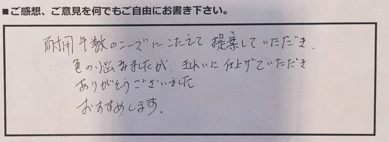 ■ご感想、ご意見を何でもご自由にお書き下さい。
耐用年数のニーズにこたえて提案していただき、
色の悩みましたが、きれいに仕上げていただき
ありがとうございました
おすすめします。